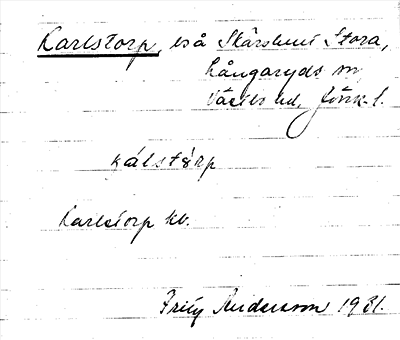 Karlstorp, lså Skärshult Stora,
Långaryds sn,
Västbo hd, Jönk. l.
kálstȯrp
Karlstorp kv.
Fritz Andersson 1931.